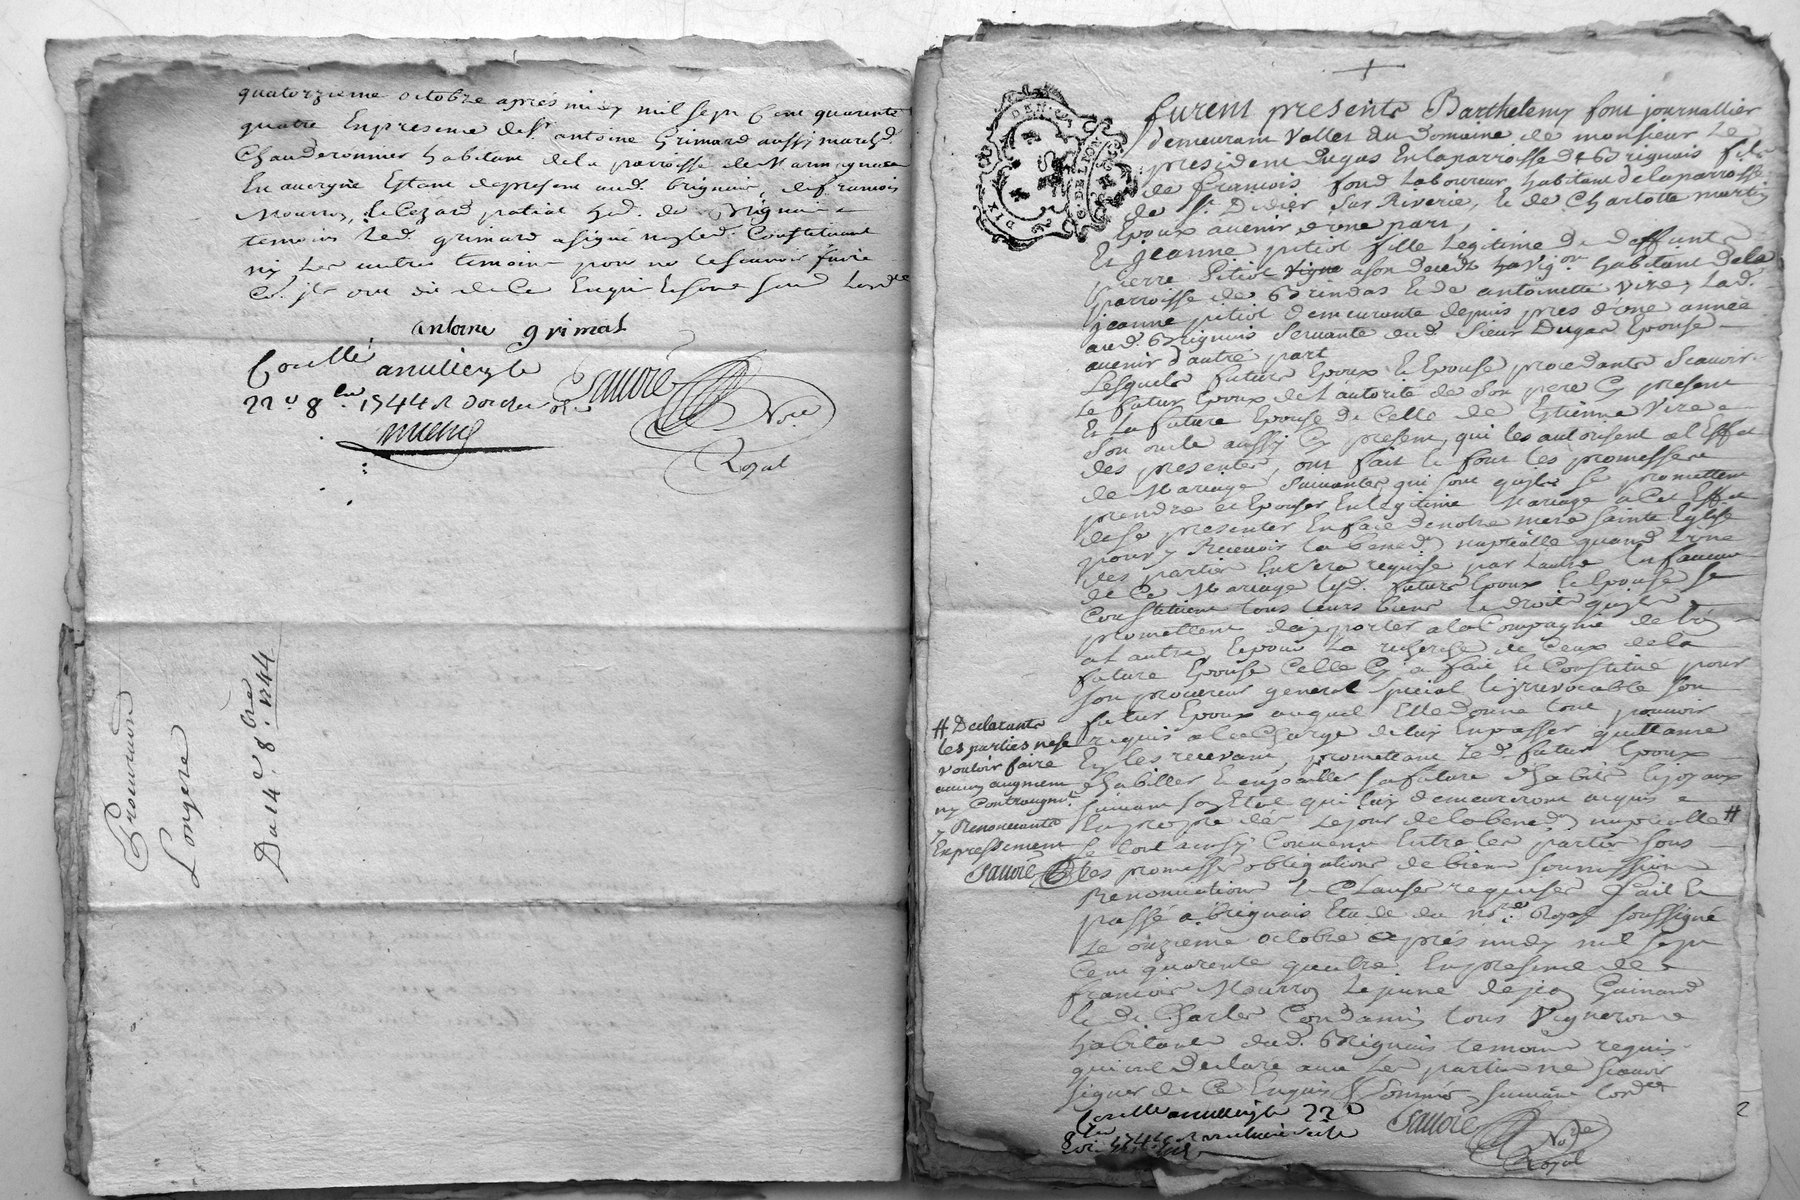 quatorzieme octobre apres midy mil sept Cent quarente
quatre En presence de Sr antoine Grimard aussy march.d
Chauderonnier habitant de la parroisse de
En auvergne Estant de present aud. brignais, de francois
Mourron, de
temoins Led. grimard a signé non led. Constituant
ny Les autres temoins pour ne le scavoir faire
Ce. jls ont dit de Ce Enquis
antoine grimal
Controllé
22e 8bre 1744
Sauvie
Nre
Royal
procuration
Longere
Du 14e 8bre 1744
DIX DEN
G. DE LION
furent presents Barthelemy font journallier
demeurant Vallet au domaine de monsieur Le
president Dugas En la parroisse de Brignais fils
de francois fond Laboureur habitant de la parroisse
de St Didier sur Riverie, & de Charlotte martin
Epoux avenir d'une part,
Et jeanne pitiot fille Legitime de deffunt
pierre pitiot vigne a son deced habitant de la
parroisse de Brindas & de antoinette Vire, Lad.
jeanne pitiot demeurante depuis pres d'une année
aud. Brignais servante aud. sieur Dugas Epouse
avenir d'autre part
Lesquels futurs Epoux & Epouse procedants scavoir
Le futur Epoux de L'autorité de son pere Cy present
Et La future Epouse de Celle de Estienne Vire
son oncle aussy Cy present, qui les autorisent a l'Effet
des presentes, ont fait & font les promesses
de Mariage suivantes qui sont quils se promettent
prendre et Epouser En legitime Mariage a Cet Effet
de se presenter En face de notre mere sainte Eglise
pour y Recevoir la bened.on nuptialle quand L'une
des parties En sera requise par L'autre En faveur
de Ce Mariage lesd. futurs Epoux & Epouse se
Constituent tous leurs biens & droits quils
promettent de porter a la Compagnie de L'un
a L'autre & pour La recherche de Ceux de la
future Epouse Celle Cy a fait & Constitué pour
son procureur general special & irrevocable son
futur Epoux auquel Elle donne tout pouvoir
requis a la Charge de luy En passer quittance
En les recevant, promettant Led. futur Epoux
d'habiller & enjoailler sa future d'habits & joyaux
suivant son Etat qui luy demeureront acquis
En propre des Le jour de la bened.on nuptialle #
Le tout ainsy Convenu Entre les parties sous
Les promesses obligations de biens soumissions
Renonciations & Clauses requises fait &
passé a Brignais Etude du nore Royal soussigné
Le onzieme octobre apres midy mil sept
Cent quarente quatre En presence de
francois Mourron Le jeune Guinand
& de Charles Condamin tous Vignerons
habitants dud. Brignais temoins requis
qui ont declaré avec Les parties ne scavoir
signer de Ce Enquis & sommés suivant L'ord.ce
# Declarants
les parties ne se
vouloir faire
aucun augment
ny Contraugmt
y Renoncants
Expressement
Sauvie
Controllé 22e
8bre 1744
Sauvie
Nore
Royal
2